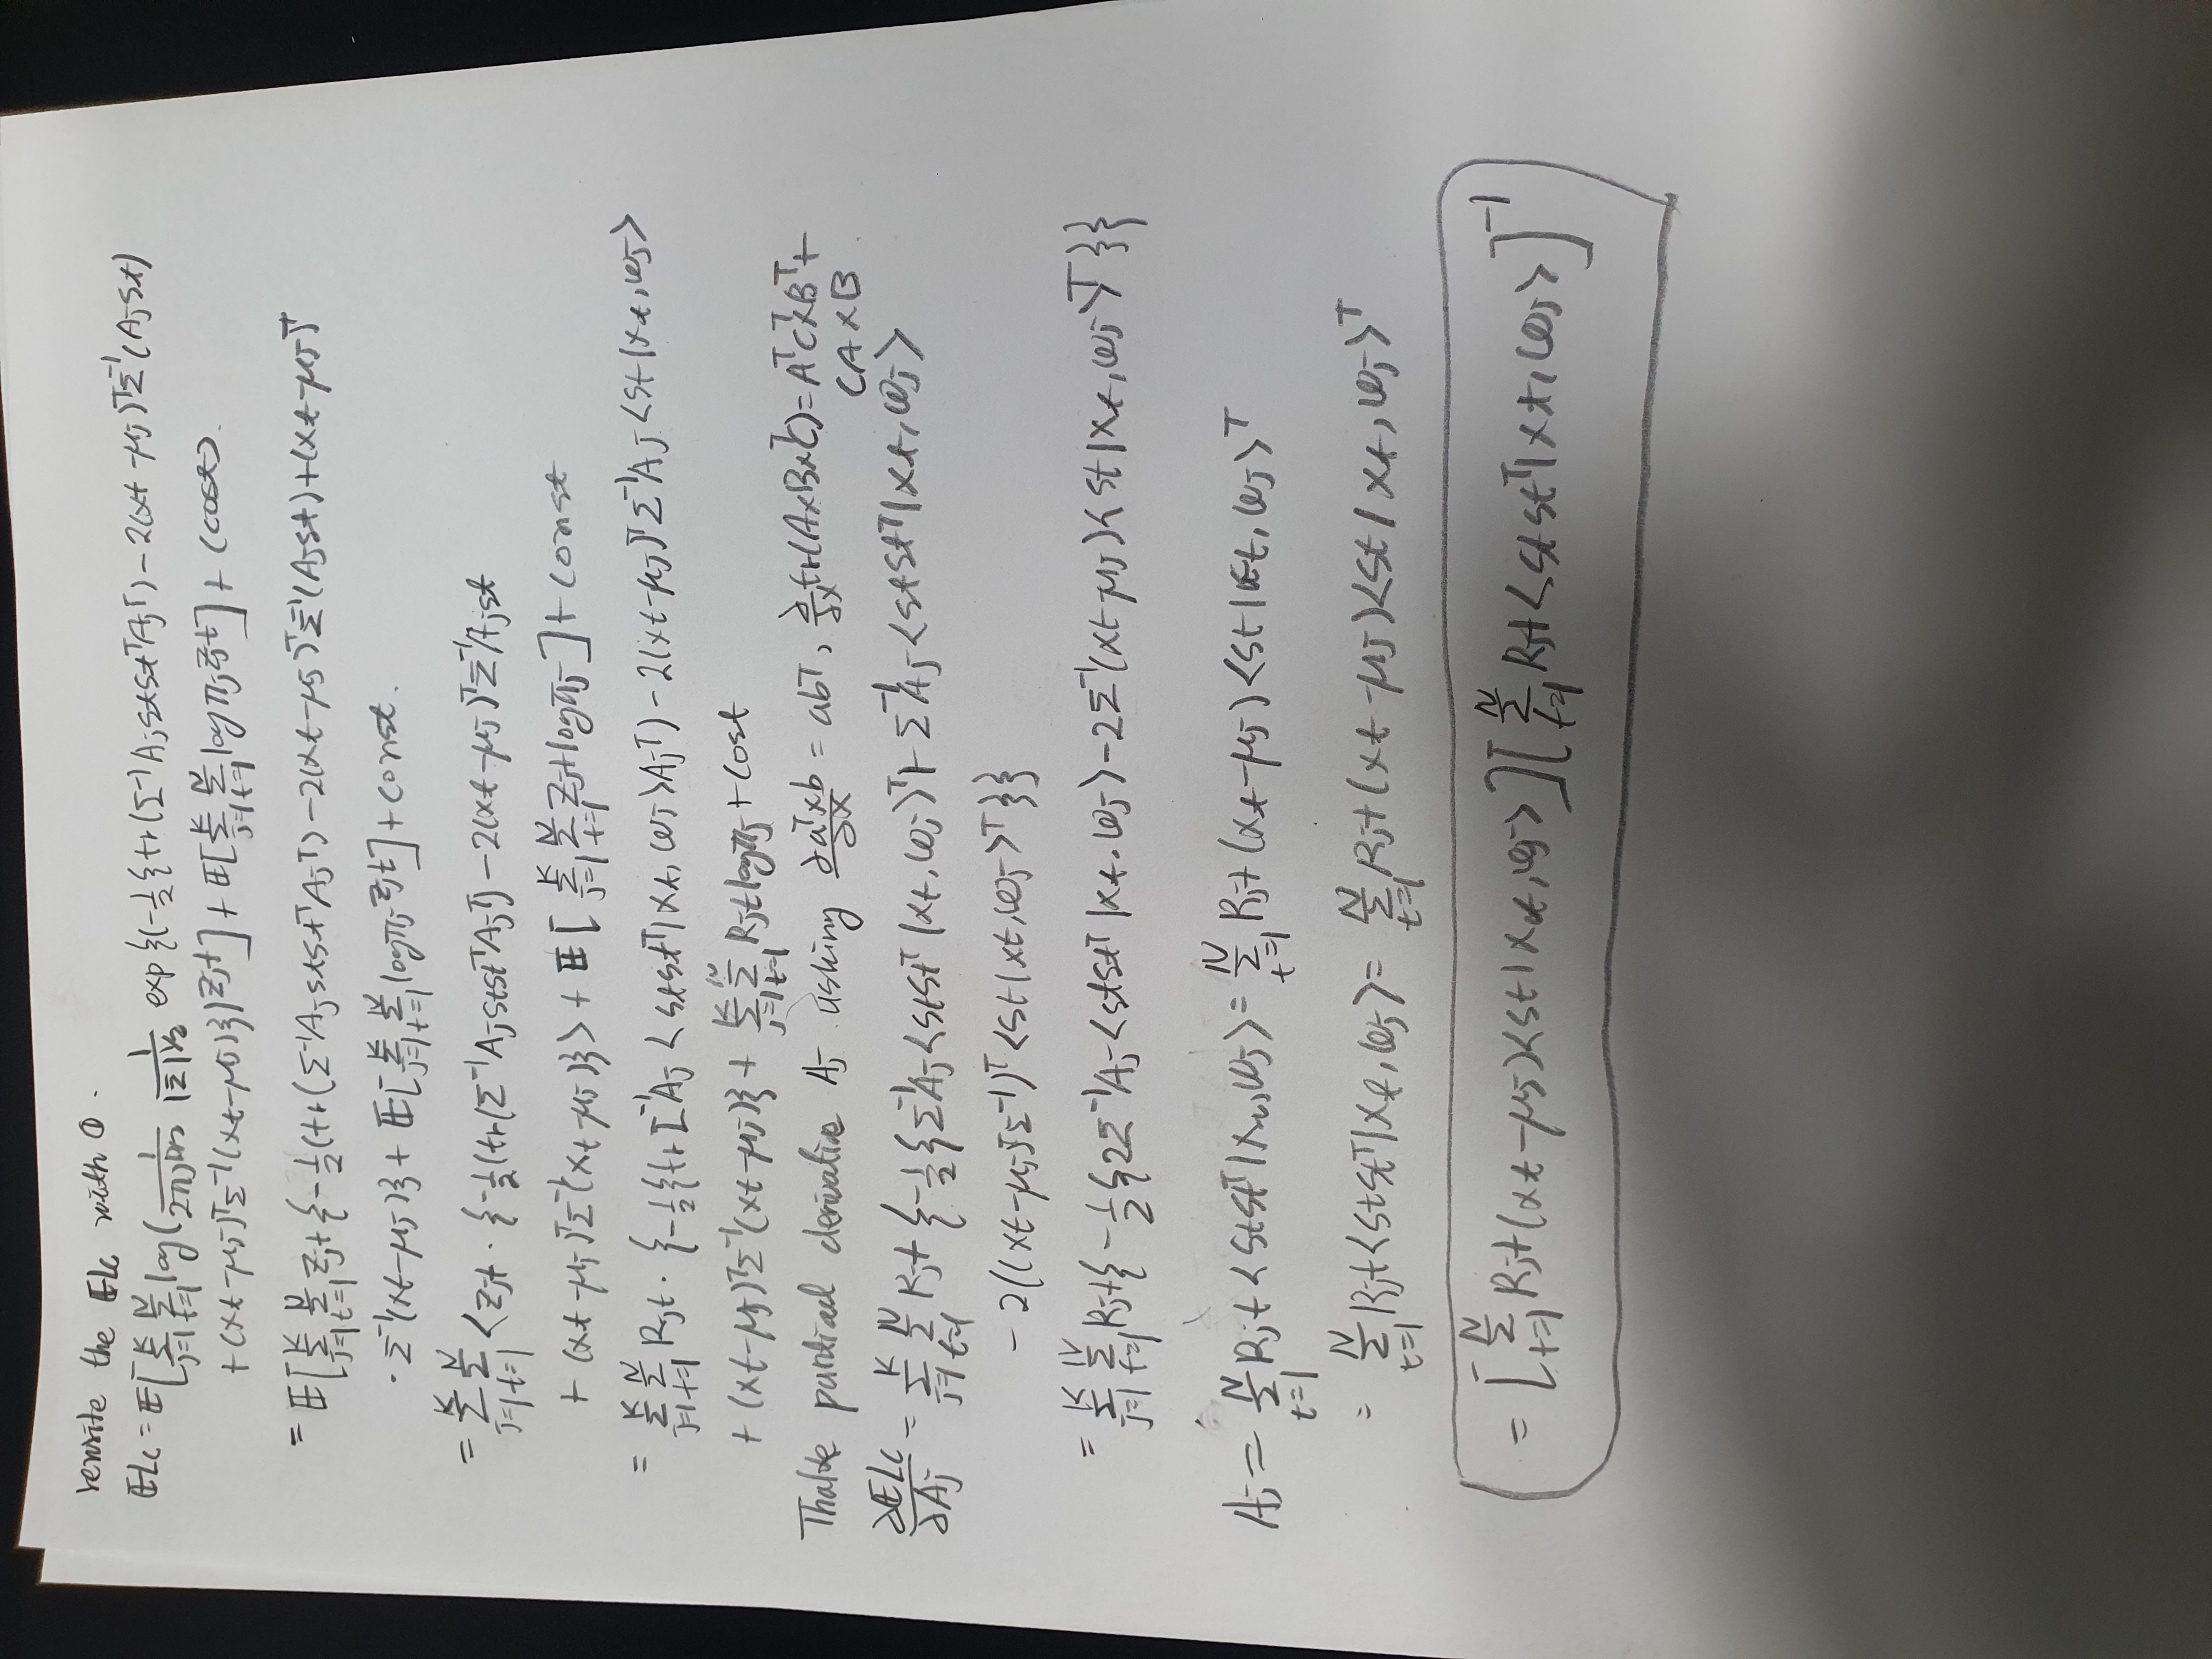 rewrite the ELc with ①.
ELc = E[Σ_{j=1}^{K} Σ_{t=1}^{N} log( 1/(2π)^{D/2} 1/|Σ|^{1/2} exp{(-1/2{tr(Σ^{-1}A_j s_t s_t^T A_j^T) - 2(x_t - μ_j)^T Σ^{-1}(A_j s_t)
+ (x_t - μ_j)^T Σ^{-1}(x_t - μ_j)})^{Z_jt}] + E[Σ_{j=1}^{K} Σ_{t=1}^{N} log π_j^{Z_jt}] + (cost).
= E[Σ_{j=1}^{K} Σ_{t=1}^{N} Z_jt {-1/2(tr(Σ^{-1}A_j s_t s_t^T A_j^T) - 2(x_t - μ_j)^T Σ^{-1}(A_j s_t) + (x_t - μ_j)^T
· Σ^{-1}(x_t - μ_j)} + E[Σ_{j=1}^{K} Σ_{t=1}^{N} log π_j^{Z_jt}] + const.
= Σ_{j=1}^{K} Σ_{t=1}^{N} <Z_jt · {-1/2(tr(Σ^{-1}A_j s_t s_t^T A_j^T) - 2(x_t - μ_j)^T Σ^{-1}A_j s_t
+ (x_t - μ_j)^T Σ^{-1}(x_t - μ_j)}> + E[Σ_{j=1}^{K} Σ_{t=1}^{N} Z_jt log π_j] + const
= Σ_{j=1}^{K} Σ_{t=1}^{N} R_jt · {-1/2{tr[Σ^{-1}A_j <s_t s_t^T | x_t, ω_j> A_j^T) - 2(x_t - μ_j)^T Σ^{-1}A_j <s_t | x_t, ω_j>
+ (x_t - μ_j)^T Σ^{-1}(x_t - μ_j)} + Σ_{j=1}^{K} Σ_{t=1}^{N} R_jt log π_j + cost
Thake partiral derivative A_j usking ∂a^T x b/∂x = ab^T, ∂/∂x tr(A x B x^T C) = A^T C^T x B^T +
C A x B.
∂ELc/∂A_j = Σ_{j=1}^{K} Σ_{t=1}^{N} R_jt {-1/2{Σ^{-1}A_j <s_t s_t^T | x_t, ω_j>^T + Σ^{-1}A_j <s_t s_t^T | x_t, ω_j>
- 2((x_t - μ_j)^T Σ^{-1})^T <s_t | x_t, ω_j>^T}}
= Σ_{j=1}^{K} Σ_{t=1}^{N} R_jt {-1/2{2Σ^{-1}A_j <s_t s_t^T | x_t, ω_j> - 2Σ^{-1}(x_t - μ_j)<s_t | x_t, ω_j>^T}}
A_j = Σ_{t=1}^{N} R_jt <s_t s_t^T | x_t, ω_j> = Σ_{t=1}^{N} R_jt (x_t - μ_j)<s_t | x_t, ω_j>^T
= Σ_{t=1}^{N} R_jt <s_t s_t^T | x_t, ω_j> = Σ_{t=1}^{N} R_jt (x_t - μ_j)<s_t | x_t, ω_j>^T
= [Σ_{t=1}^{N} R_jt (x_t - μ_j)<s_t | x_t, ω_j>][Σ_{t=1}^{N} R_jt <s_t s_t^T | x_t, ω_j>]^{-1}